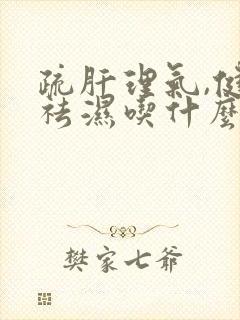 疏肝理氣,健
祛濕喫什麼
樊家七爺